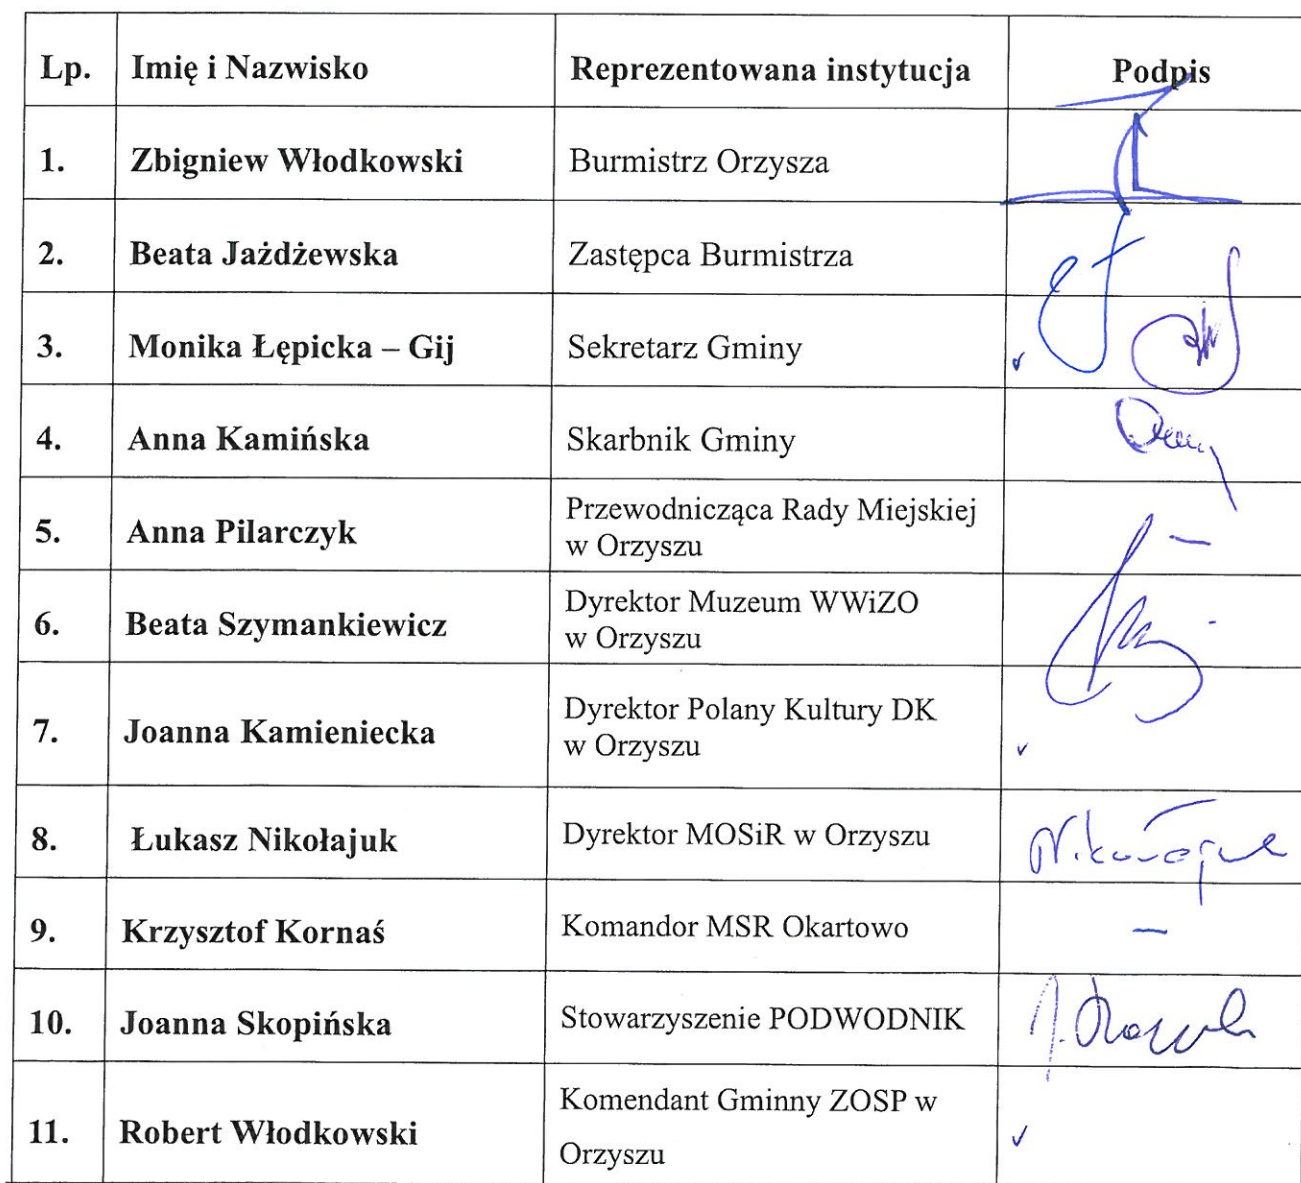 Lp. Imię i Nazwisko Reprezentowana instytucja Podpis
1. Zbigniew Włodkowski Burmistrz Orzysza
2. Beata Jażdżewska Zastępca Burmistrza
3. Monika Łępicka – Gij Sekretarz Gminy
4. Anna Kamińska Skarbnik Gminy
5. Anna Pilarczyk Przewodnicząca Rady Miejskiej
w Orzyszu
6. Beata Szymankiewicz Dyrektor Muzeum WWiZO
w Orzyszu
7. Joanna Kamieniecka Dyrektor Polany Kultury DK
w Orzyszu
8. Łukasz Nikołajuk Dyrektor MOSiR w Orzyszu
9. Krzysztof Kornaś Komandor MSR Okartowo
10. Joanna Skopińska Stowarzyszenie PODWODNIK
11. Robert Włodkowski Komendant Gminny ZOSP w
Orzyszu